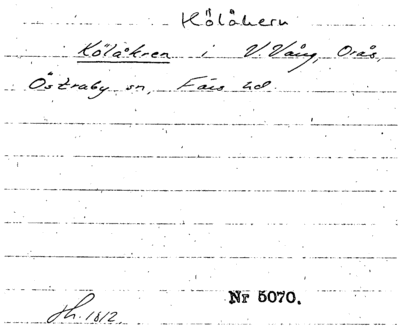 Kölåkern
Kölåkren i V. Vång, Orås,
Östraby sn, Färs hd.
Nr 5070.
Hh. 1812.